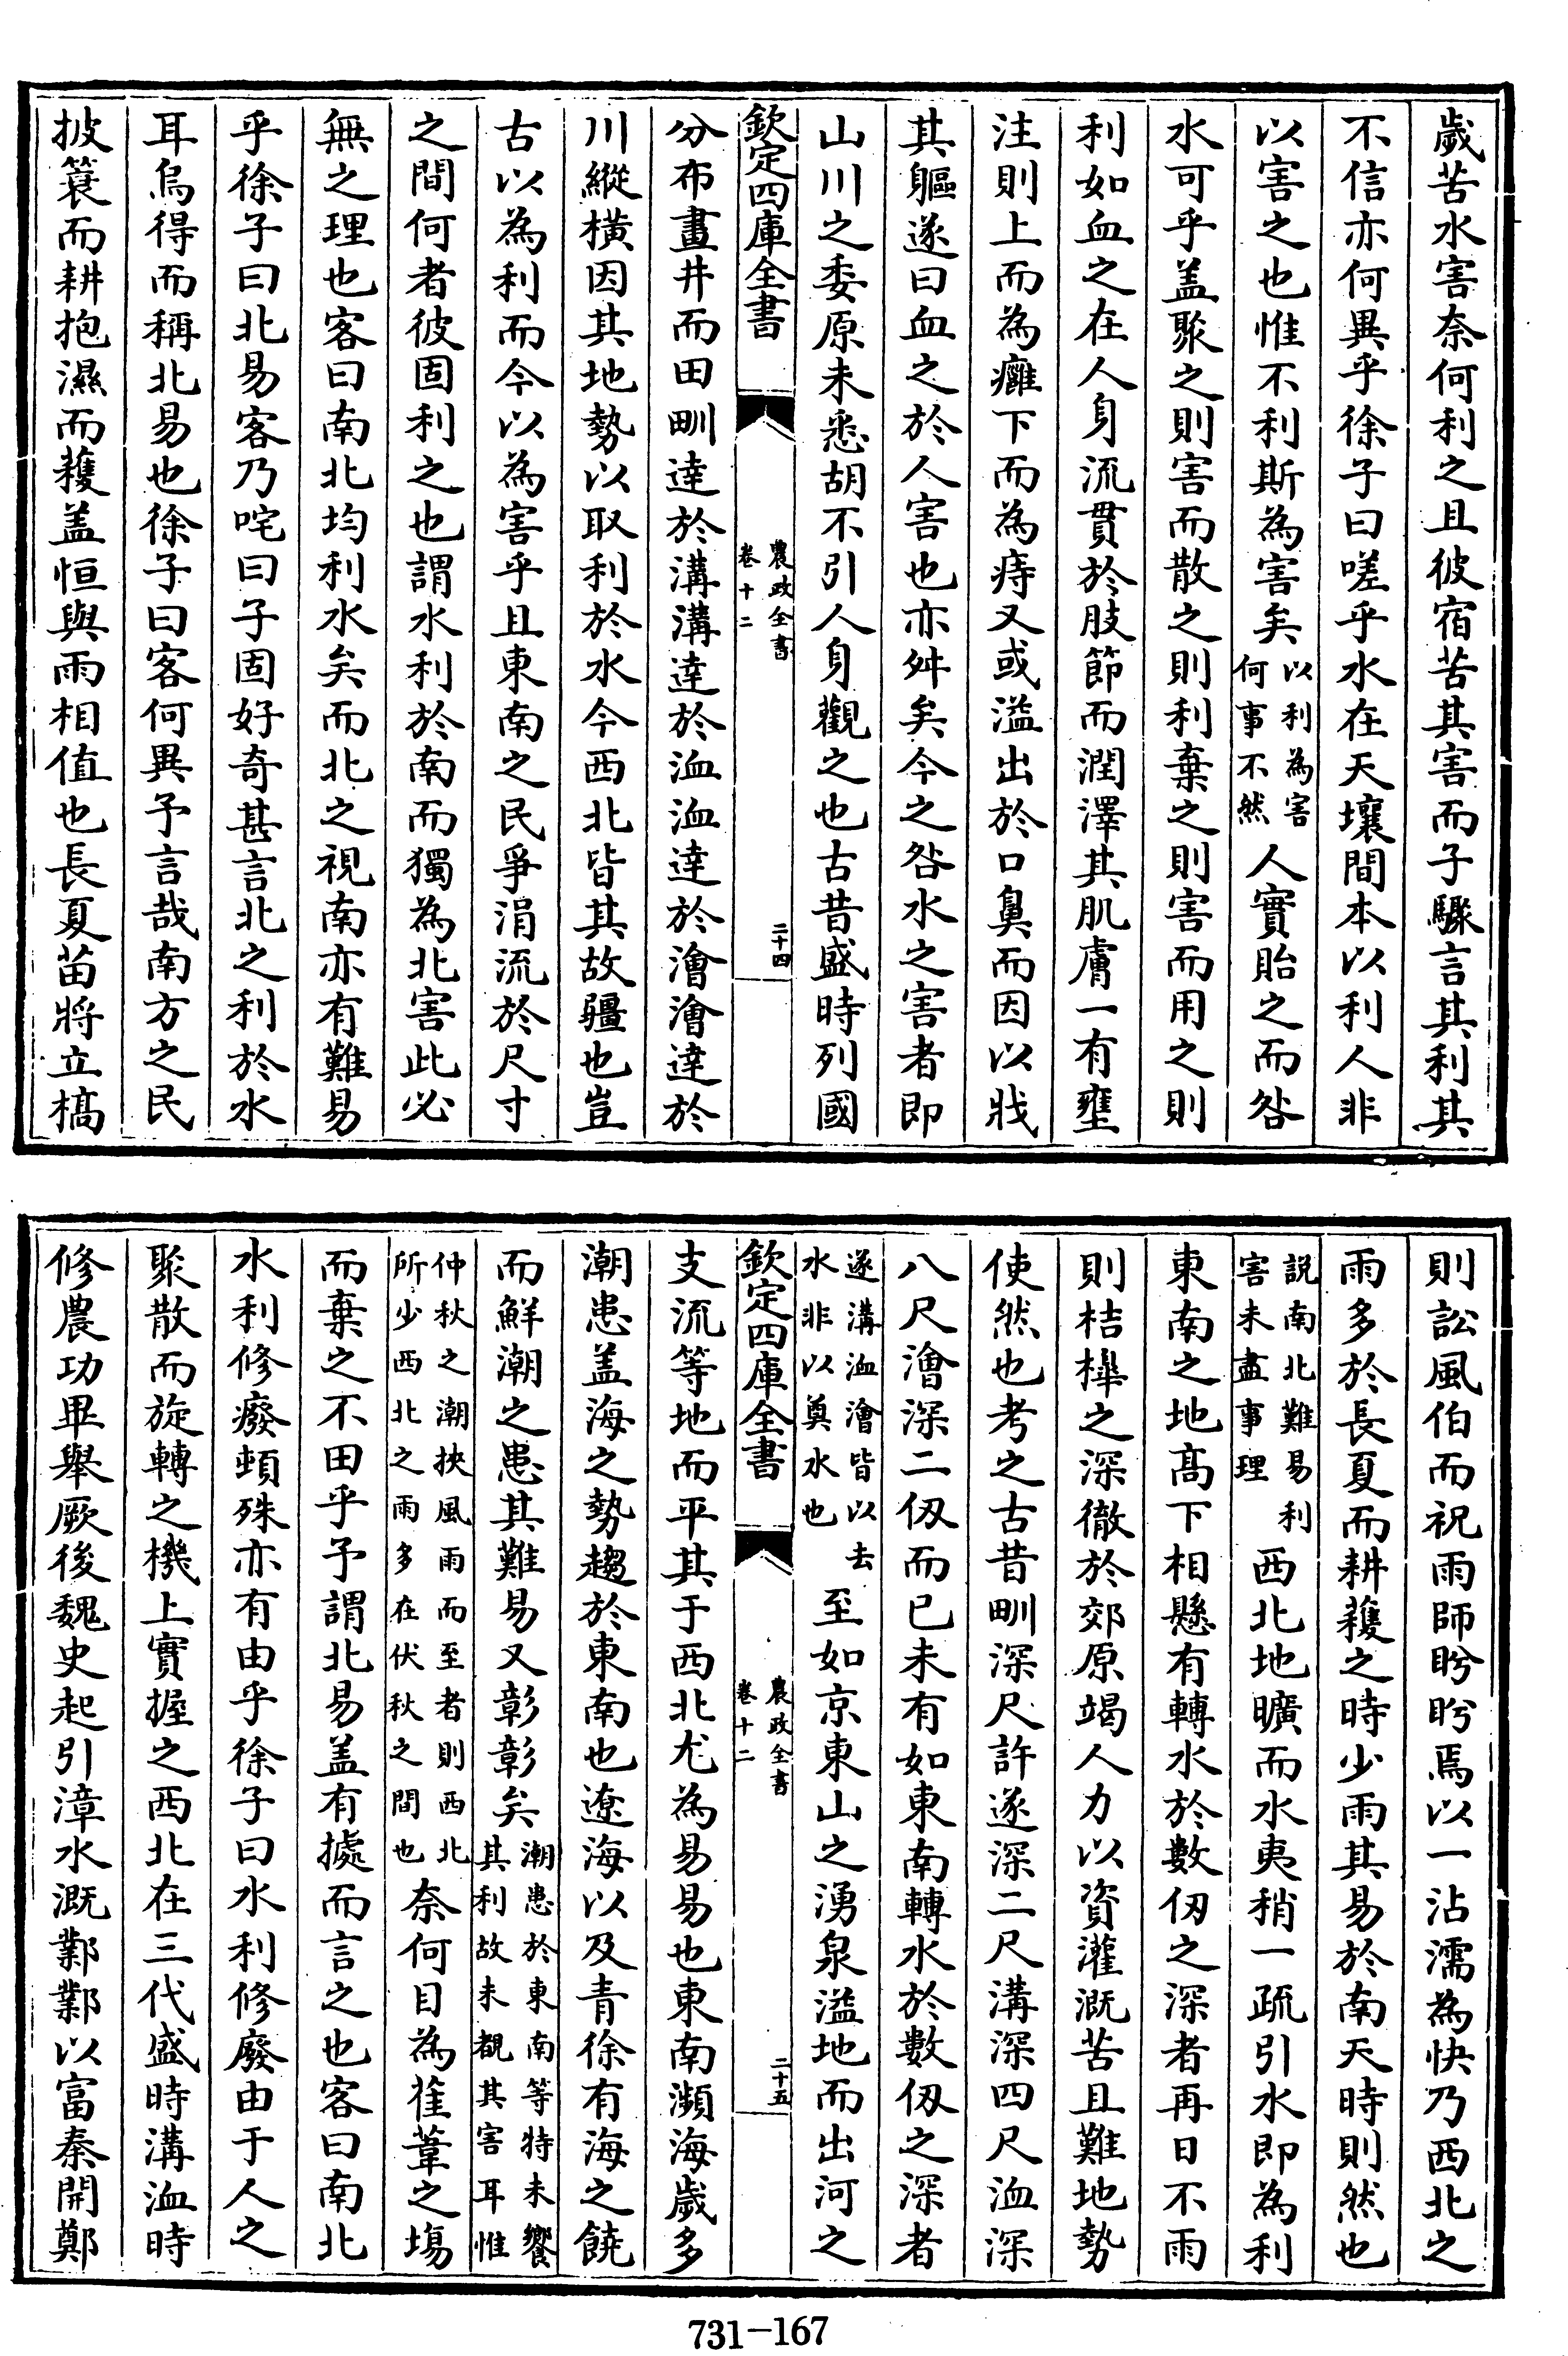 歲苦水害奈何利之且彼宿苦其害而子驟言其利其
不信亦何異乎徐子曰嗟乎水在天壤間本以利人非
以害之也惟不利斯為害矣以利為害何事不然人實貽之而咎
水可乎盖聚之則害而散之則利棄之則害而用之則
利如血之在人身流貫於肢節而潤澤其肌膚一有壅
注則上而為癰下而為痔又或溢出於口鼻而因以戕
其軀遂曰血之於人害也亦舛矣今之咎水之害者即
山川之委原未悉胡不引人身觀之也古昔盛時列國
欽定四庫全書
農政全書
卷十二
二十四
分布畫井而田甽達於溝溝達於洫洫達於澮澮達於
川縱橫因其地勢以取利於水今西北皆其故疆也豈
古以為利而今以為害乎且東南之民爭涓流於尺寸
之間何者彼固利之也謂水利於南而獨為北害此必
無之理也客曰南北均利水矣而北之視南亦有難易
乎徐子曰北易客乃咤曰子固好奇甚言北之利於水
耳烏得而稱北易也徐子曰客何異予言哉南方之民
披簑而耕抱濕而穫盖恒與雨相值也長夏苗將立槁
則訟風伯而祝雨師盻盻焉以一沾濡為快乃西北之
雨多於長夏而耕穫之時少雨其易於南天時則然也
説南北難易利害未盡事理西北地曠而水夷稍一疏引水即為利
東南之地高下相懸有轉水於數仭之深者再日不雨
則桔槹之深徹於郊原竭人力以資灌溉苦且難地勢
使然也考之古昔甽深尺許遂深二尺溝深四尺洫深
八尺澮深二仭而已未有如東南轉水於數仭之深者
遂溝洫澮皆以去水非以奠水也至如京東山之湧泉溢地而出河之
欽定四庫全書
農政全書
卷十二
二十五
支流等地而平其于西北尤為易易也東南瀕海歲多
潮患盖海之勢趨於東南也遼海以及青徐有海之饒
而鮮潮之患其難易又彰彰矣潮患於東南等特未饗其利故未覩其害耳惟
仲秋之潮挾風雨而至者則西北所少西北之雨多在伏秋之間也奈何目為萑葦之場
而棄之不田乎予謂北易盖有據而言之也客曰南北
水利修癈頓殊亦有由乎徐子曰水利修廢由于人之
聚散而旋轉之機上實握之西北在三代盛時溝洫時
修農功畢舉厥後魏史起引漳水溉鄴鄴以富秦開鄭
731-167